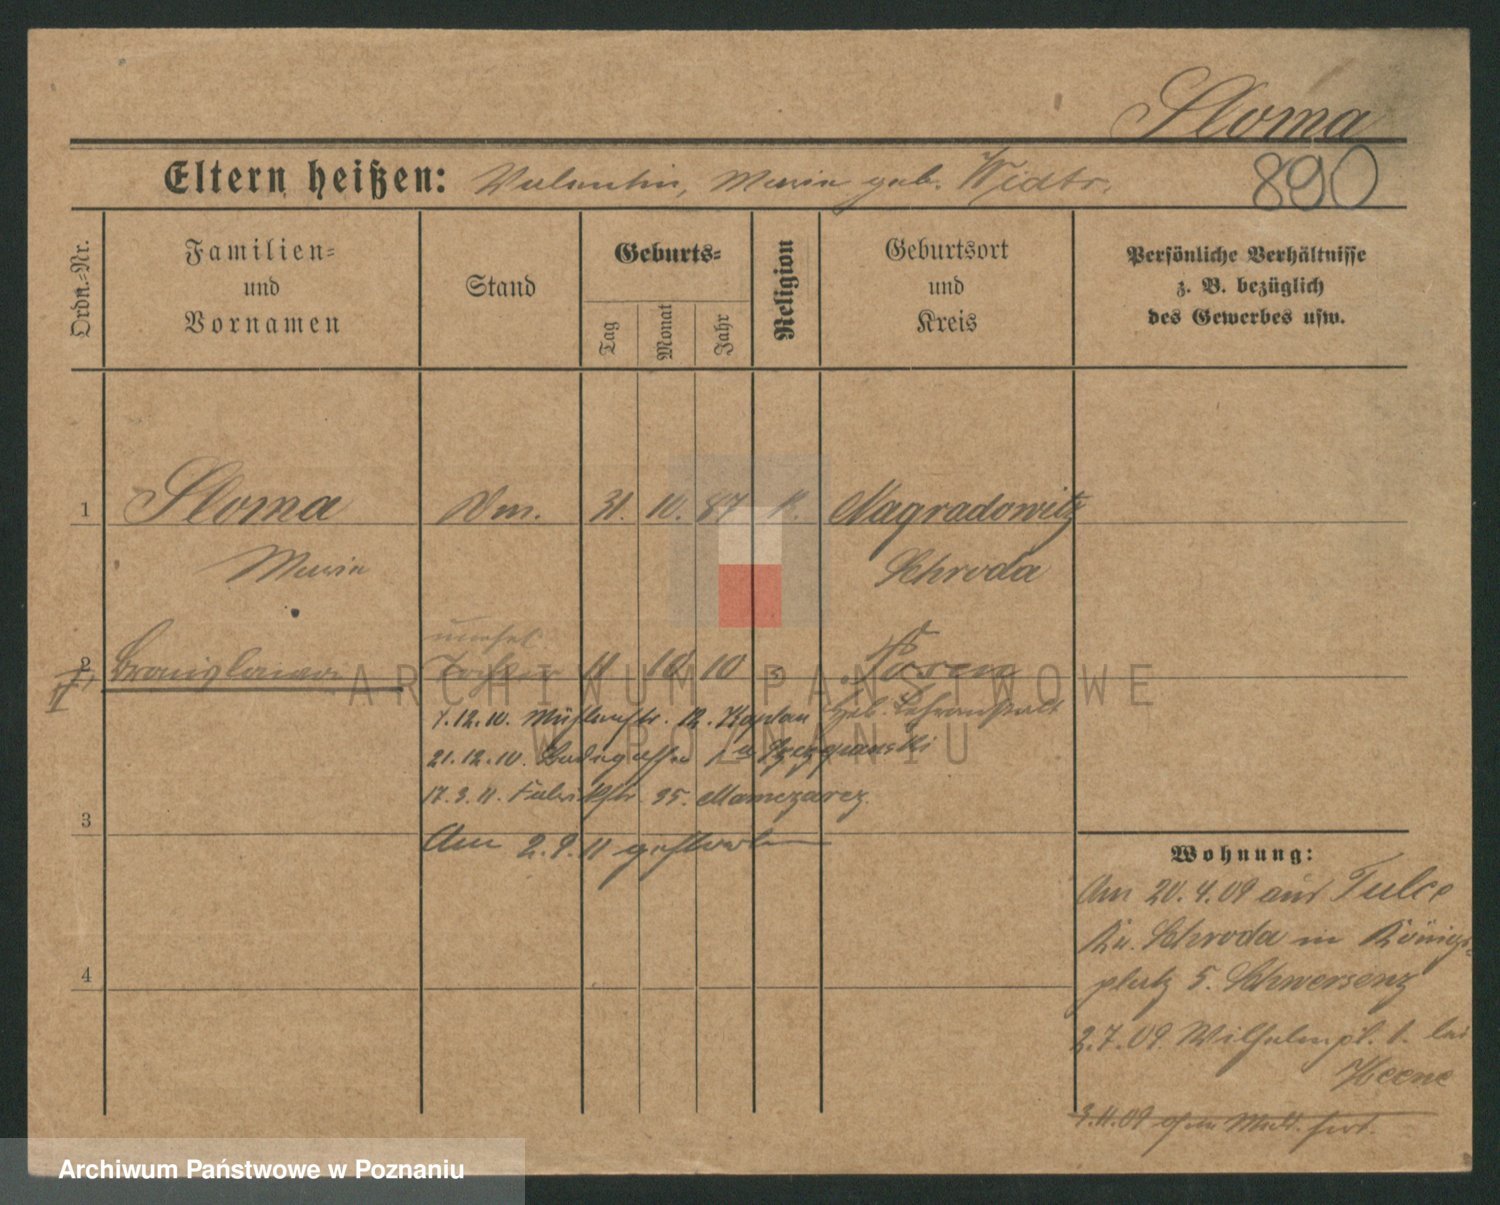 Sloma
Eltern heißen: Valentin, Maria geb.
890
Ordn.-Nr.
Familien=
und
Vornamen
Stand
Geburts=
Tag
Monat
Jahr
Religion
Geburtsort
und
Kreis
Persönliche Verhältnisse
z. B. bezüglich
des Gewerbes usw.
1 Sloma 31. 10. 87 K. Nagradowitz
Maria Schroda
unehel.
2 Bronislawa Tochter 11 10 10 Posen
†
7.12.10. Mühlenstr. 12. Kaplan Heb. Lehranstalt
21.12.10.
17.3.11. Fabrikstr. 35.
3
Am 2.9.11 gestorben
4
Wohnung:
Am 20.4.09 aus Tulce
Kr. Schroda in Königs-
platz 5. Schwersenz
2.7.09. Wilhelmpl. 1. bei
Heene
3.11.09 ohne Meld. fort.
ARCHIWUM PAŃSTWOWE
W POZNANIU
Archiwum Państwowe w Poznaniu